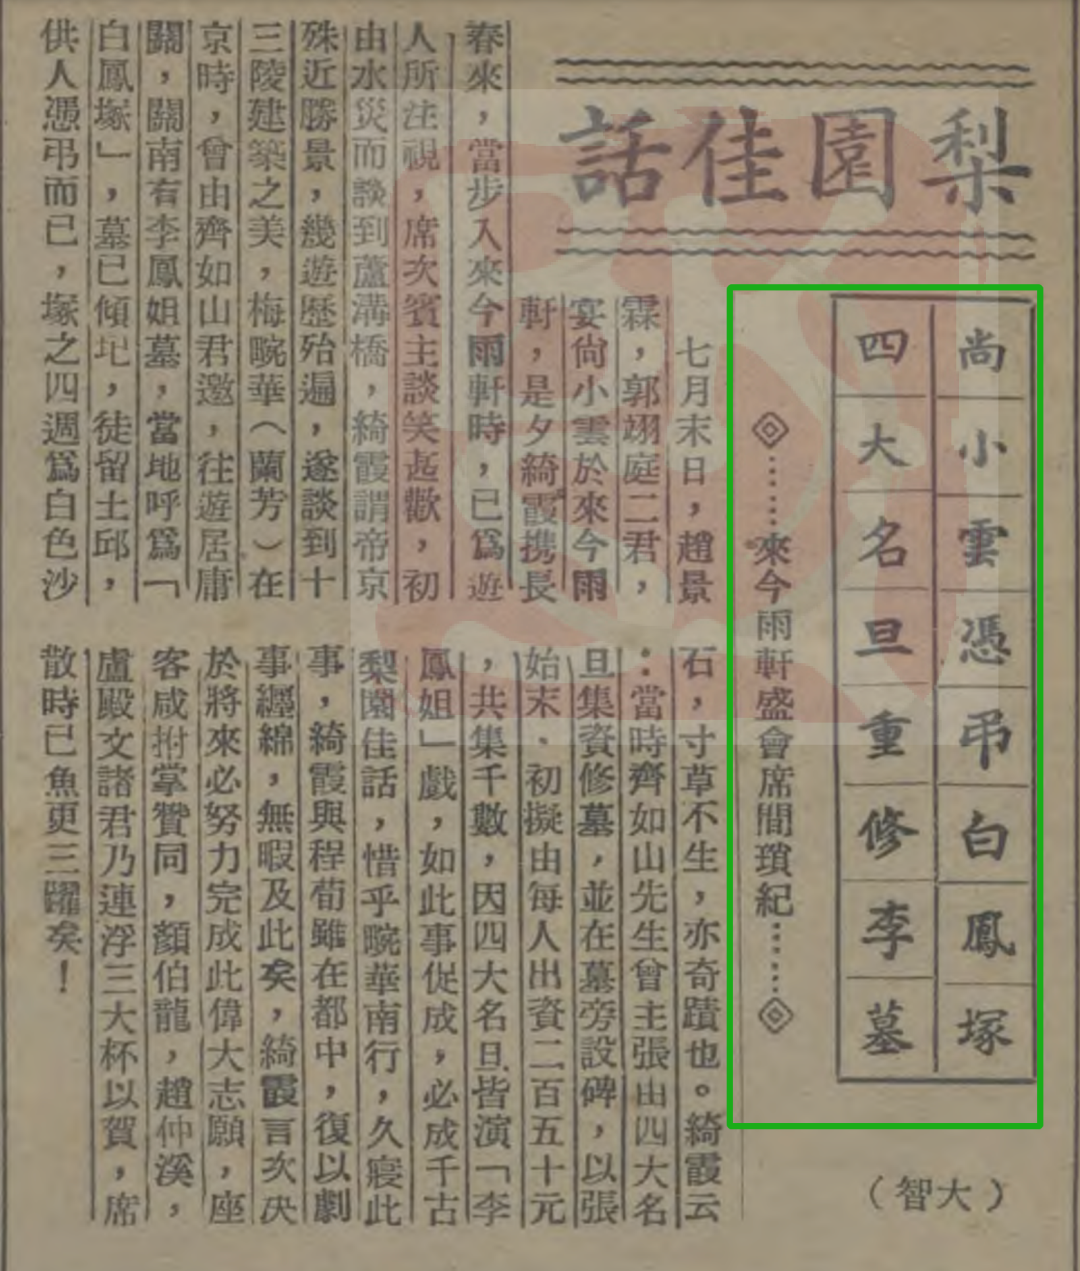 梨園佳話
尚小雲憑弔白鳳塚
四大名旦重修李墓
◇……來今雨軒盛會席間瑣紀……◇
（大智）
七月末日，趙景
霖，郭翊庭二君，
宴尙小雲於來今雨
軒，是夕綺霞携長
春來，當步入來今雨軒時，已爲遊
人所注視，席次賓主談笑甚歡，初
由水災而談到蘆溝橋，綺霞謂帝京
殊近勝景，幾遊歷殆遍，遂談到十
三陵建築之美，梅畹華（蘭芳）在
京時，曾由齊如山君邀，往遊居庸
關，關南有李鳳姐墓，當地呼爲「
白鳳塚」，墓已傾圮，徒留土邱，
供人憑弔而已，塚之四週爲白色沙
石，寸草不生，亦奇蹟也。綺霞云
：當時齊如山先生曾主張由四大名
旦集資修墓，並在墓旁設碑，以張
始末．初擬由每人出資二百五十元
，共集千數，因四大名旦皆演「李
鳳姐」戲，如此事促成，必成千古
梨園佳話，惜乎畹華南行，久寢此
事，綺霞與程荀雖在都中，復以劇
事纒綿，無暇及此矣，綺霞言次決
於將來必努力完成此偉大志願，座
客咸拊掌贊同，顏伯龍，趙仲溪，
盧殿文諸君乃連浮三大杯以賀，席
散時已魚更三躍矣！